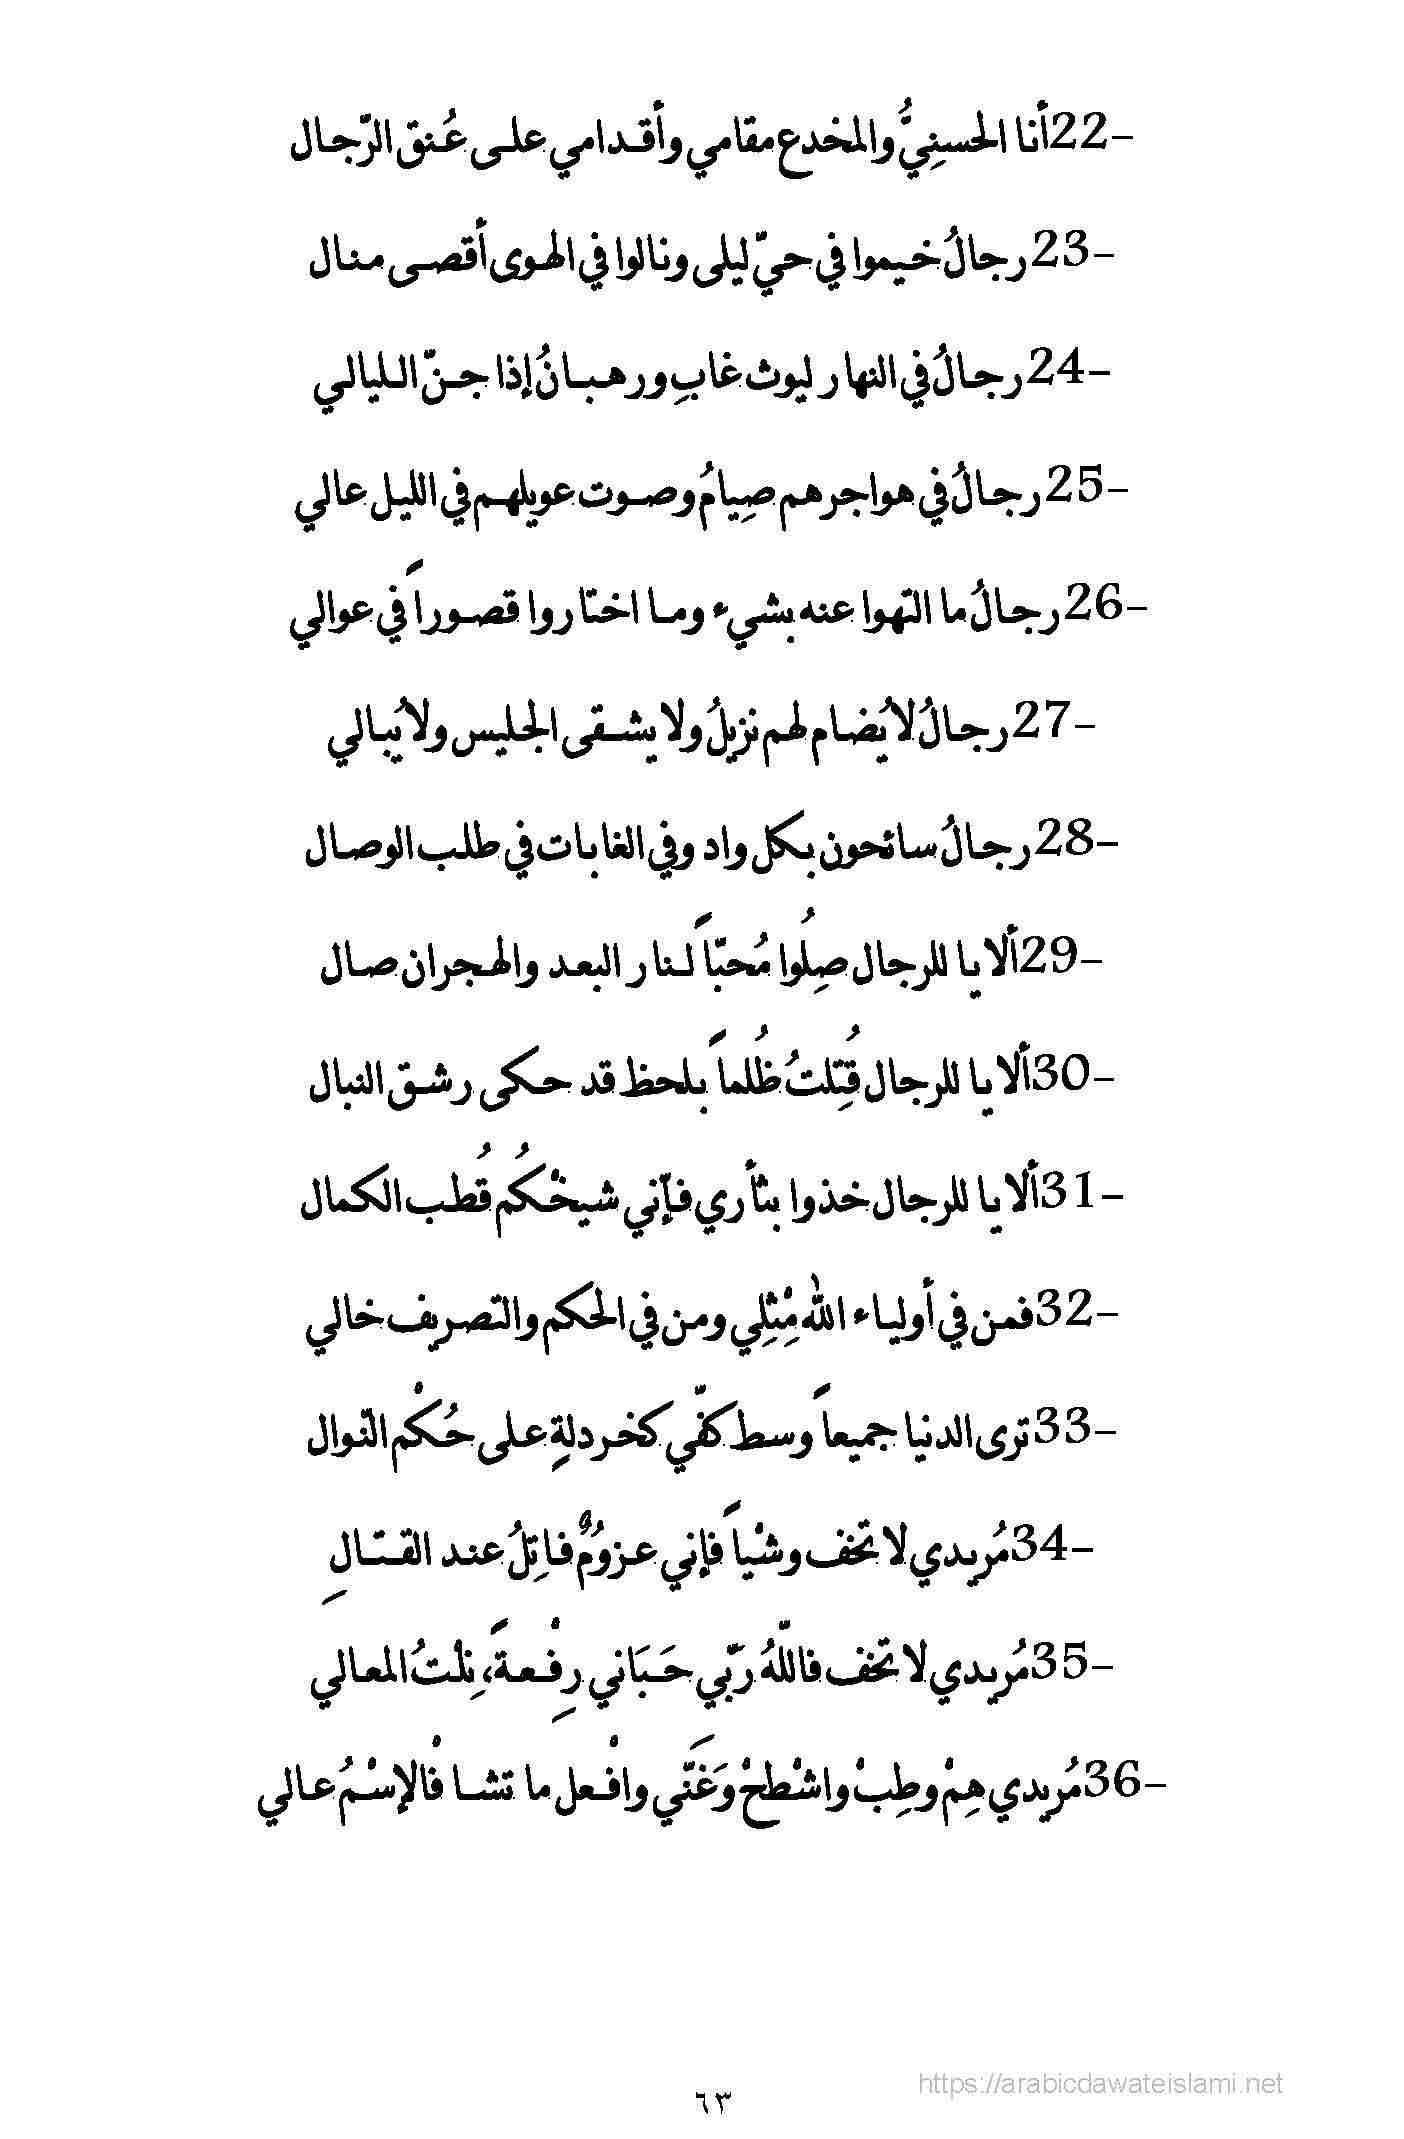 22-أنا الحسنِيُّ والمخدع مقامي وأقدامي على عُنق الرّجال
23-رجالُ خيموا في حيّ ليلى ونالوا في الهوى أقصى منال
24-رجالُ في النهار ليوث غابِ ورهبانُ إذا جنّ الليالي
25-رجالُ في هواجرهم صِيامُ وصوت عويلهم في الليل عالي
26-رجالُ ما التهوا عنه بشيء وما اختاروا قصوراً في عوالي
27-رجالُ لا يُضام لهم نزيلُ ولا يشقى الجليس ولا يُبالي
28-رجالُ سائحون بكل واد وفي الغابات في طلب الوصال
29-ألا يا للرجال صِلُوا مُحبّاً لنار البعد والهجران صال
30-ألا يا للرجال قُتِلتُ ظُلماً بلحظ قد حكى رشق النبال
31-ألا يا للرجال خذوا بثأري فإنّي شيخْكُم قُطب الكمال
32-فمن في أولياء الله مْثِلِي ومن في الحكم والتصريف خالي
33-ترى الدنيا جميعاً وسط كفّي كخردلةٍ على حُكْم النّوال
34-مُريدي لا تخف وشْياً فإني عزوُمٌ قاتِلُ عند القتالِ
35-مُريدي لا تخف فاللّهُ ربّي حَبَاني رِفْعةً، نِلْتُ المعالي
36-مُريدي هِمْ وطِبْ واشْطحْ وَغَنّي وافْعل ما تشا فْالإسْمُ عالي
٦٣
https://arabicdawateislami.net